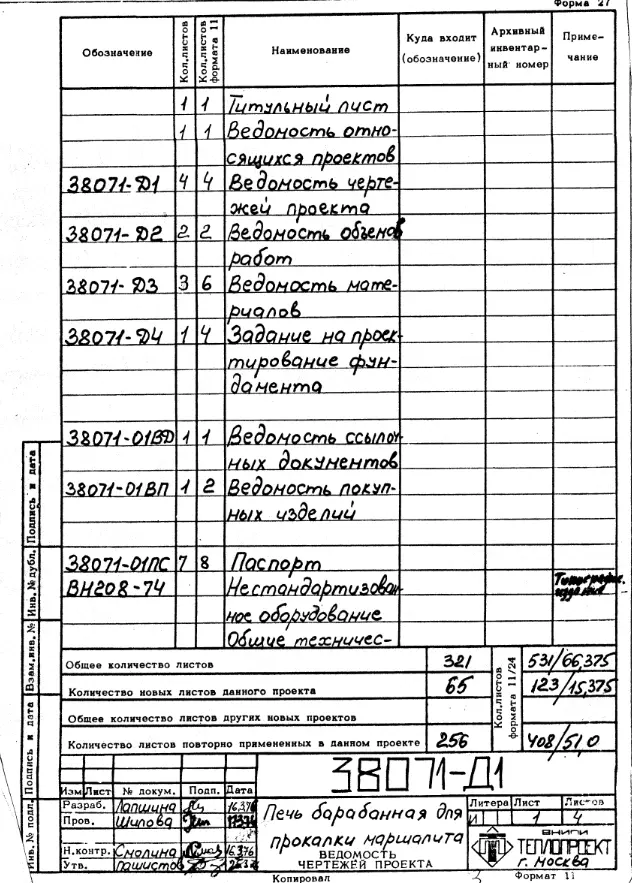 Форма 27
Обозначение Кол.листов Кол.листов формата 11 Наименование Куда входит (обозначение) Архивный инвентарный номер Примечание
1 1 Титульный лист
1 1 Ведомость отно-
сящихся проектов
38071-Д1 4 4 Ведомость черте-
жей проекта
38071-Д2 2 2 Ведомость объемов
работ
38071-Д3 3 6 Ведомость мате-
риалов
38071-Д4 1 4 Задание на проек-
тирование фун-
дамента
38071-01ВД 1 1 Ведомость ссылоч-
ных документов
38071-01ВП 1 2 Ведомость покуп-
ных изделий
38071-01ПС 7 8 Паспорт
ВН208-74 Нестандартизован-
ное оборудование
Общие техничес-
Общее количество листов 321 531/66,375
Количество новых листов данного проекта 65 123/15,375
Общее количество листов других новых проектов
Количество листов повторно примененных в данном проекте 256 408/51,0
Кол.листов формата 11/24
Подпись и дата
Инв.№ дубл.
Взам.инв.№
Подпись и дата
Инв.№ подл.
38071-Д1
Изм Лист № докум. Подп. Дата
Разраб. Лапшина
Пров. Шилова
Н.контр. Смолина
Утв.
Печь барабанная для
прокалки маршалита
ВЕДОМОСТЬ
ЧЕРТЕЖЕЙ ПРОЕКТА
Литера Лист Листов
И 1 4
ВНИПИ
ТЕПЛОПРОЕКТ
г. Москва
Копировал Формат 11